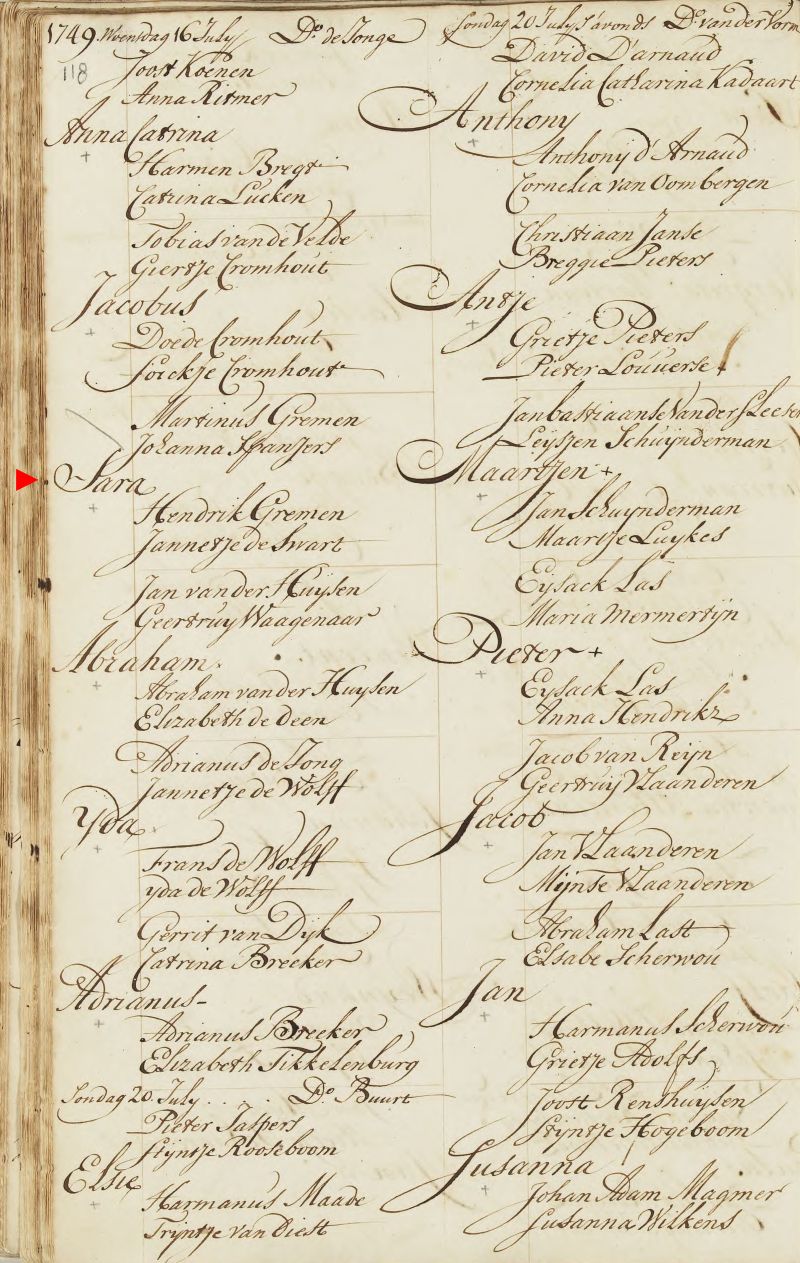 1749. Woensdag 16 July Do. de Jonge
118
Joost Koenen
Anna Ritmer
Anna Catrina
Harmen Bregt
Catrina Lucken
Tobias van de Velde
Giertje Cromhout
Jacobus
Doede Cromhout
Foickje Cromhout
Martinus Gremen
Johanna Spanjers
Sara
Hendrik Gremen
Jannetje de Swart
Jan van der Huysen
Geertruy Waagenaar
Abraham.
Abraham van der Huysen
Elizabeth de Deen
Adrianus de Jong
Jannetje de Wolff
Yda
Frans de Wolff
yda de Wolff
Gerrit van Dijk
Catrina Breeker
Adrianus-
Adrianus Breeker
Elizabeth Tikkelenburg
Sondag 20. July . . . . Do. Buurt
Pieter Jaspers
Stijntje Rooseboom
Elsie
Harmanus Maade
Trijntje van Diest
Sondag 20 July s'avonds Do. van der Vorm
David D'arnaud
Cornelia Catharina Kadaart
Anthony
Anthonij d'Arnaud
Cornelia van Oombergen
Christiaan Janse
Breggie Pieters
Antje
Grietje Pieters
Pieter Louwerse +
Jan bastiaanse Vander Sleeten
Leijszen Schuijnderman
Maartjen +
Jan Schuynderman
Maartje Luykes
Eijsack Las
Maria Mermertijn
Pieter +
Eysack Las
Anna Hendrikz
Jacob van Reijn
Geertruij Vlaanderen
Jacob
Jan Vlaanderen
Mijnse Vlaanderen
Abraham Last
Elsabe Scherwou
Jan
Harmanus Scherwou
Grietje Adolfs
Joost Renshuysen
Stijntje Hogeboom
Susanna
Johan Adam Magmer
Susanna Wilkens